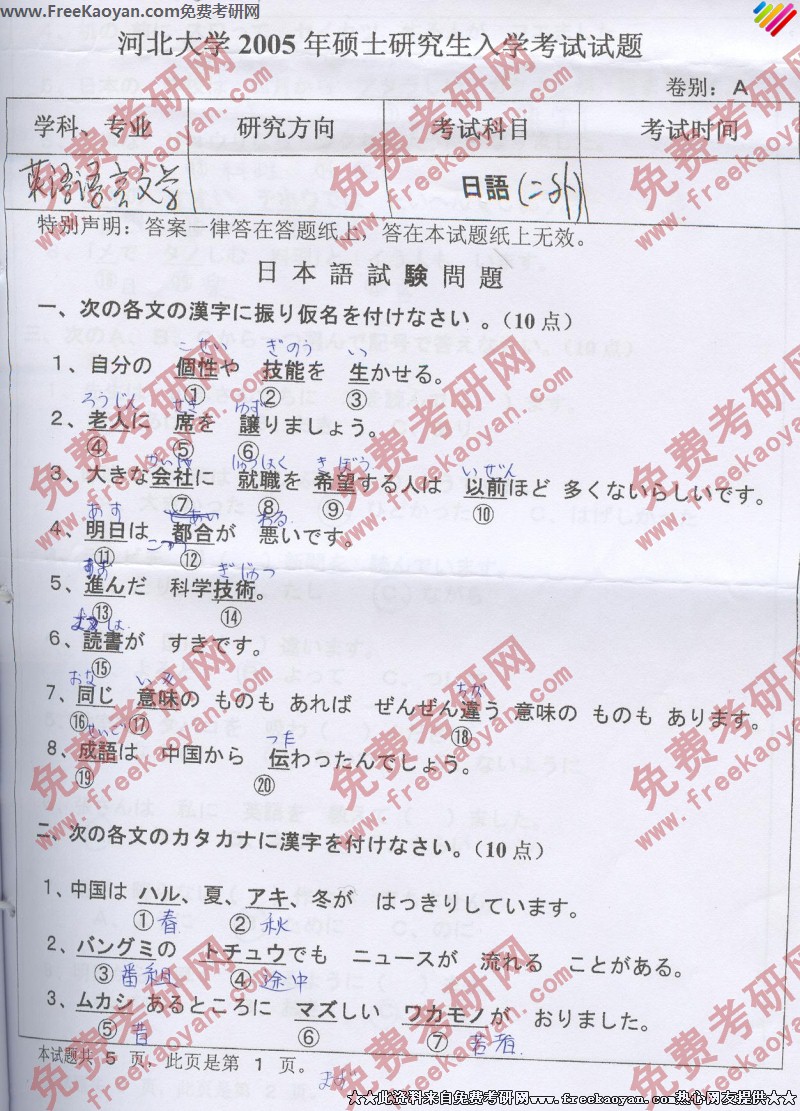 www.FreeKaoyan.com免费考研网
河北大学2005年硕士研究生入学考试试题
卷别：A
学科、专业 研究方向 考试科目 考试时间
英语语言文学 日語(二外)
特别声明：答案一律答在答题纸上，答在本试题纸上无效。
日本語試験問題
一、次の各文の漢字に振り仮名を付けなさい。(10点)
こせい ぎのう い
1、自分の 個性や 技能を 生かせる。
① ② ③
ろうじん せき ゆず
2、老人に 席を 譲りましょう。
④ ⑤ ⑥
かいしゃ しゅうしょく きぼう いぜん
3、大きな会社に 就職を希望する人は 以前ほど 多くないらしいです。
⑦ ⑧ ⑨ ⑩
あす わる
4、明日は 都合が 悪いです。
⑪ ⑫
ぎじゅつ
5、進んだ 科学技術。
⑬ ⑭
6、読書が すきです。
⑮
おな いみ ちが
7、同じ 意味の ものも あれば ぜんぜん違う 意味の ものも あります。
⑯ ⑰ ⑱
せいご つた
8、成語は 中国から 伝わったんでしょう。
⑲ ⑳
二、次の各文のカタカナに漢字を付けなさい。(10点)
1、中国は ハル、夏、アキ、冬が はっきりしています。
①春 ②秋
2、バングミの トチュウでも ニュースが 流れる ことがある。
③番組 ④途中
3、ムカシ あるところに マズしい ワカモノが おりました。
⑤昔 ⑥ ⑦若者
本试题共 5 页，此页是第 1 页。
まず
★★此资料来自免费考研网www.freekaoyan.com热心网友提供★★
免费考研网
www.freekaoyan.com